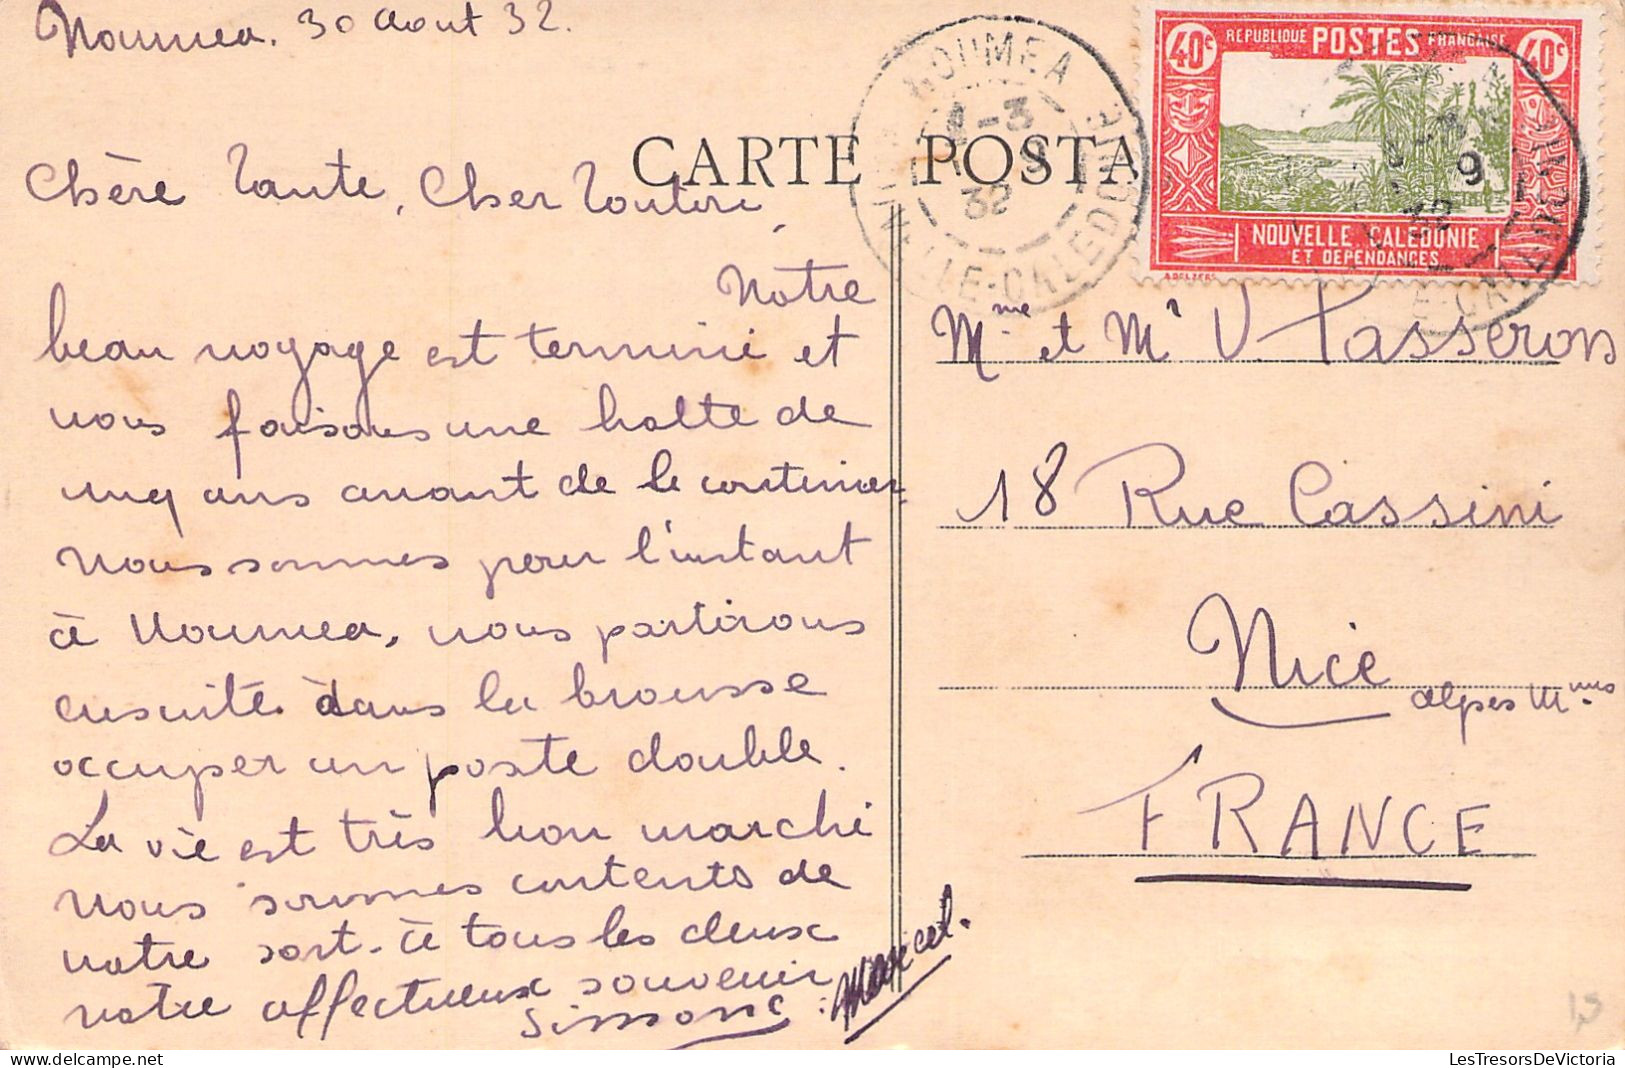 Nouméa. 30 Août 32.
CARTE POSTA
Chère Tante, Cher Tonton,
Notre
beau voyage est terminé et
nous faisons une halte de
cinq ans avant de le continuer
nous sommes pour l'instant
à Nouméa, nous partirons
ensuite dans la brousse
occuper un poste double.
La vie est très bon marché
nous sommes contents de
notre sort. à tous les deux
notre affectueux souvenir
Simone. Marcel.
NOUMEA
-3
9
32
NOUVELLE-CALEDONIE
REPUBLIQUE POSTES FRANÇAISE
40c 40c
9
32
NOUVELLE CALEDONIE
ET DEPENDANCES
E-CALEDONIE
Mme et Mr V. Tasseron
18 Rue Cassini
Nice
Alpes Mmes
FRANCE
1,5
LesTresorsDeVictoria